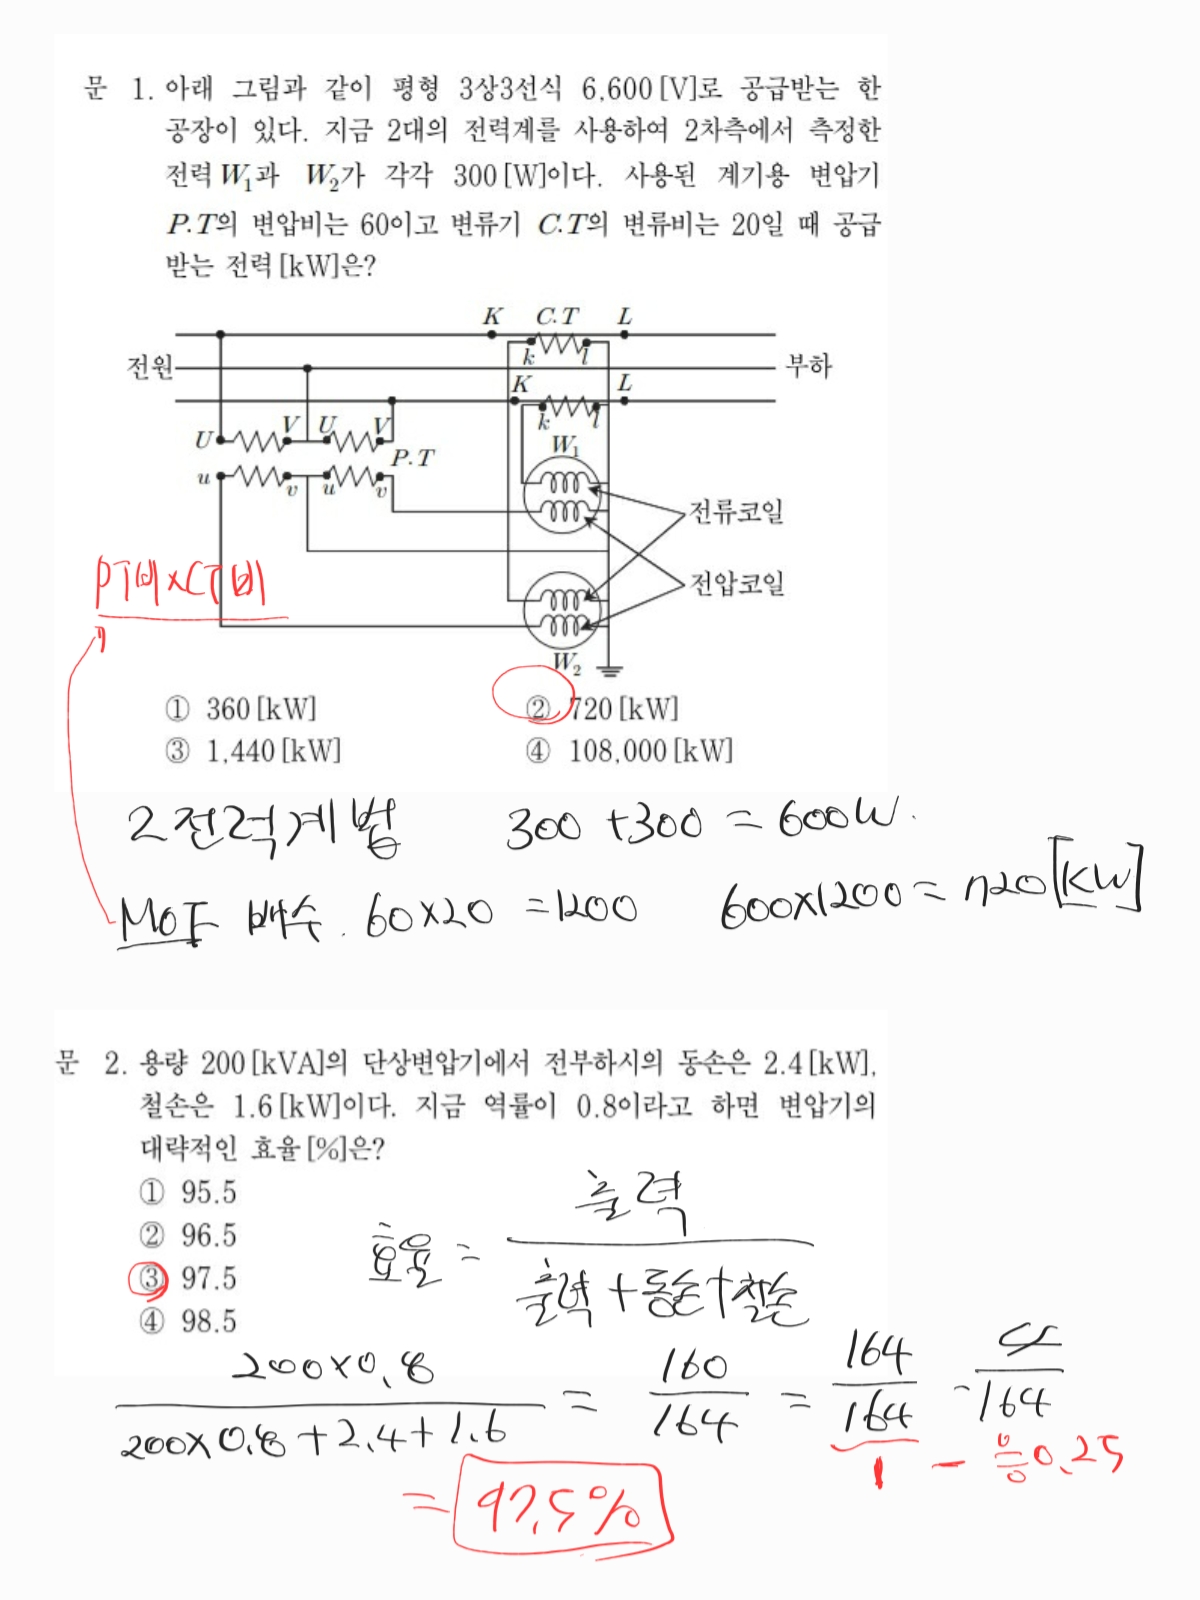 문 1. 아래 그림과 같이 평형 3상3선식 6,600[V]로 공급받는 한
공장이 있다. 지금 2대의 전력계를 사용하여 2차측에서 측정한
전력 W₁과 W₂가 각각 300[W]이다. 사용된 계기용 변압기
P.T의 변압비는 60이고 변류기 C.T의 변류비는 20일 때 공급
받는 전력[kW]은?
K C.T L
k l
전원 부하
K L
k l
U V U V
P.T
u v u v
W₁
전류코일
전압코일
W₂
PT비×CT비
① 360[kW] ② 720[kW]
③ 1,440[kW] ④ 108,000[kW]
2전력계법 300+300=600W.
MOF 배수. 60×20=1200 600×1200=720[kW]
문 2. 용량 200[kVA]의 단상변압기에서 전부하시의 동손은 2.4[kW],
철손은 1.6[kW]이다. 지금 역률이 0.8이라고 하면 변압기의
대략적인 효율[%]은?
① 95.5
② 96.5
③ 97.5
④ 98.5
효율 = 출력 / 출력+동손+철손
200×0.8 / 200×0.8+2.4+1.6 = 160/164 = 164/164 - 4/164
1 - ≒0.25
= 97.5%